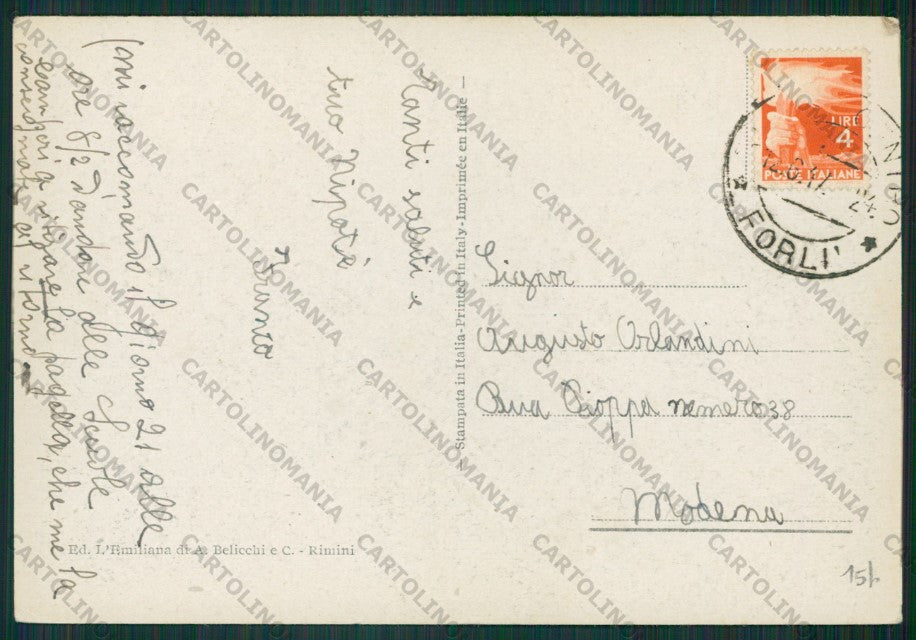 Tanti saluti e
tuo Nipote
Franco
(mi raccomando il giorno 21 alle
ore 8/2 d'andare alle Scuole
a ritirare la pagella, che me la
al ritorno
Stampata in Italia-Printed in Italy-Imprimée en Italie
LIRE
4
POSTE ITALIANE
FORLI'
Signor
Augusto Orlandini
Rua Pioppa nemero 38
Modena
Ed. L'Emiliana di A. Belicchi e C. - Rimini
15/
CARTOLINOMANIA